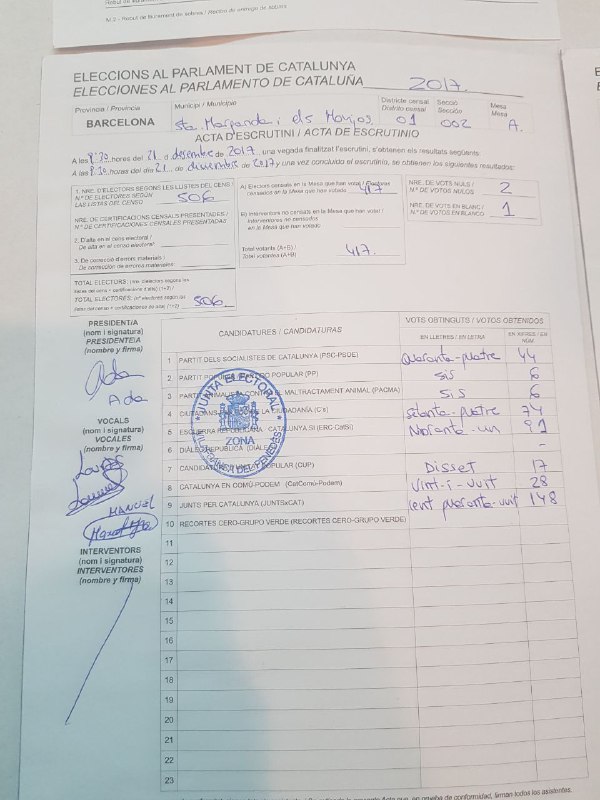 M.2 - Rebut de lliurament de sobres / Recibo de entrega de sobres
ELECCIONS AL PARLAMENT DE CATALUNYA
ELECCIONES AL PARLAMENTO DE CATALUÑA 2017
Provincia / Provincia Municipi / Municipio Districte censal Secció Mesa
Distrito censal Sección Mesa
BARCELONA Sta. Margarida i els Monjos 01 002 A.
ACTA D'ESCRUTINI / ACTA DE ESCRUTINIO
A les 9'30 hores del 21 de desembre de 2017, una vegada finalitzat l'escrutini, s'obtenen els resultats següents:
A las 9.30 horas del día 21 de diciembre de 2017, una vez concluido el escrutinio, se obtienen los siguientes resultados:
1. NRE. D'ELECTORS SEGONS LES LLISTES DEL CENS /
N.º DE ELECTORES SEGÚN
LAS LISTAS DEL CENSO 506
NRE. DE CERTIFICACIONS CENSALS PRESENTADES /
N.º DE CERTIFICACIONES CENSALES PRESENTADAS
2. D'alta en el cens electoral /
De alta en el censo electoral
3. De correcció d'errors materials /
De corrección de errores materiales
TOTAL ELECTORS: (nre. d'electors segons les
llistes del cens + certificacions d'alta) (1+2) /
TOTAL ELECTORES: (nº electores según las
listas del censo + certificaciones de alta) (1+2) 506
A) Electors censats en la Mesa que han votat / Electores
censados en la Mesa que han votado 417
B) Interventors no censats en la Mesa que han votat /
Interventores no censados
en la Mesa que han votado
Total votants (A+B) /
Total votantes (A+B) 417.
NRE. DE VOTS NULS /
N.º DE VOTOS NULOS 2
NRE. DE VOTS EN BLANC /
N.º DE VOTOS EN BLANCO 1
PRESIDENT/A
(nom i signatura)
PRESIDENTE/A
(nombre y firma)
Ada
VOCALS
(nom i signatura)
VOCALES
(nombre y firma)
MANUEL
INTERVENTORS
(nom i signatura)
INTERVENTORES
(nombre y firma)
CANDIDATURES / CANDIDATURAS VOTS OBTINGUTS / VOTOS OBTENIDOS
EN LLETRES / EN LETRA EN XIFRES / EN NÚM.
1 PARTIT DELS SOCIALISTES DE CATALUNYA (PSC-PSOE) Quaranta-quatre 44
2 PARTIT POPULAR / PARTIDO POPULAR (PP) SIS 6
3 PARTIT ANIMALISTA CONTRA EL MALTRACTAMENT ANIMAL (PACMA) SIS 6
4 CIUTADANS-PARTIDO DE LA CIUDADANÍA (C's) Setanta-quatre 74
5 ESQUERRA REPUBLICANA - CATALUNYA SÍ (ERC-CatSí) Noranta-un 91
6 DIÀLEG REPÚBLICA (DIÀLEG) -
7 CANDIDATURA D'UNITAT POPULAR (CUP) DISSET 17
8 CATALUNYA EN COMÚ-PODEM (CatComú-Podem) Vint-i-vuit 28
9 JUNTS PER CATALUNYA (JUNTSxCAT) cent quaranta-vuit 148
10 RECORTES CERO-GRUPO VERDE (RECORTES CERO-GRUPO VERDE)
11
12
13
14
15
16
17
18
19
20
21
22
23
JUNTA ELECTORAL
ZONA
VILAFRANCA DEL PENEDÈS
Acta que, en prueba de conformidad, firman todos los asistentes.